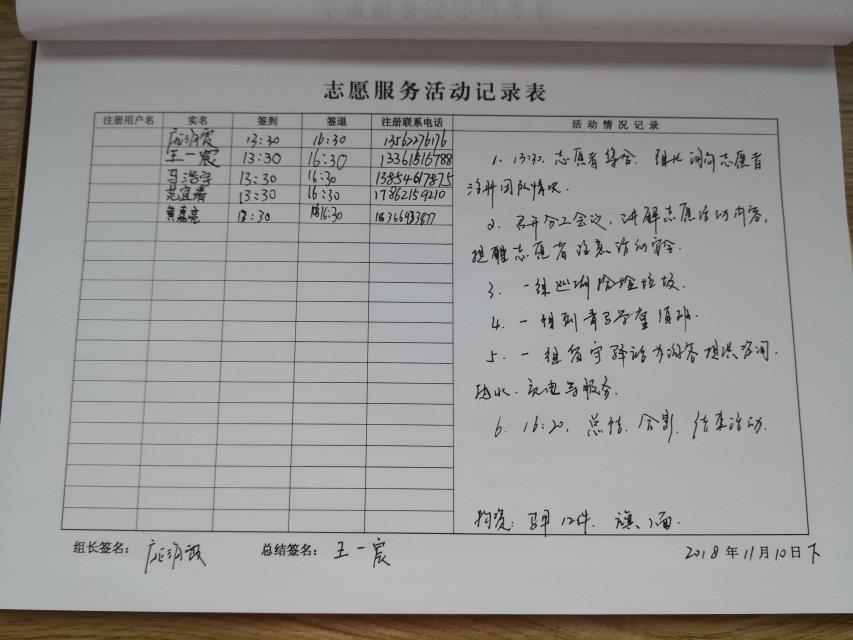 志愿服务活动记录表
注册用户名 实名 签到 签退 注册联系电话 活动情况记录
13:30 16:30 13562276176
王一宸 13:30 16:30 13361516788
马浩宇 13:30 16:30 13854617875
范宜清 13:30 16:30 17862159210
黄嘉亮 13:30 16:30
1. 13:30. 志愿者集合. 组长询问志愿者
注册团队情况.
2. 召开分工会议, 讲解志愿活动内容,
提醒志愿者注意活动安全.
3. 一组巡湖捡捡垃圾.
4. 一组到青马学堂值班.
5. 一组留守驿站为游客提供咨询.
热水. 充电等服务.
6. 16:20, 总结, 合影, 结束活动.
物资: 马甲12件. 旗1面.
组长签名: 总结签名: 王一宸 2018年11月10日下